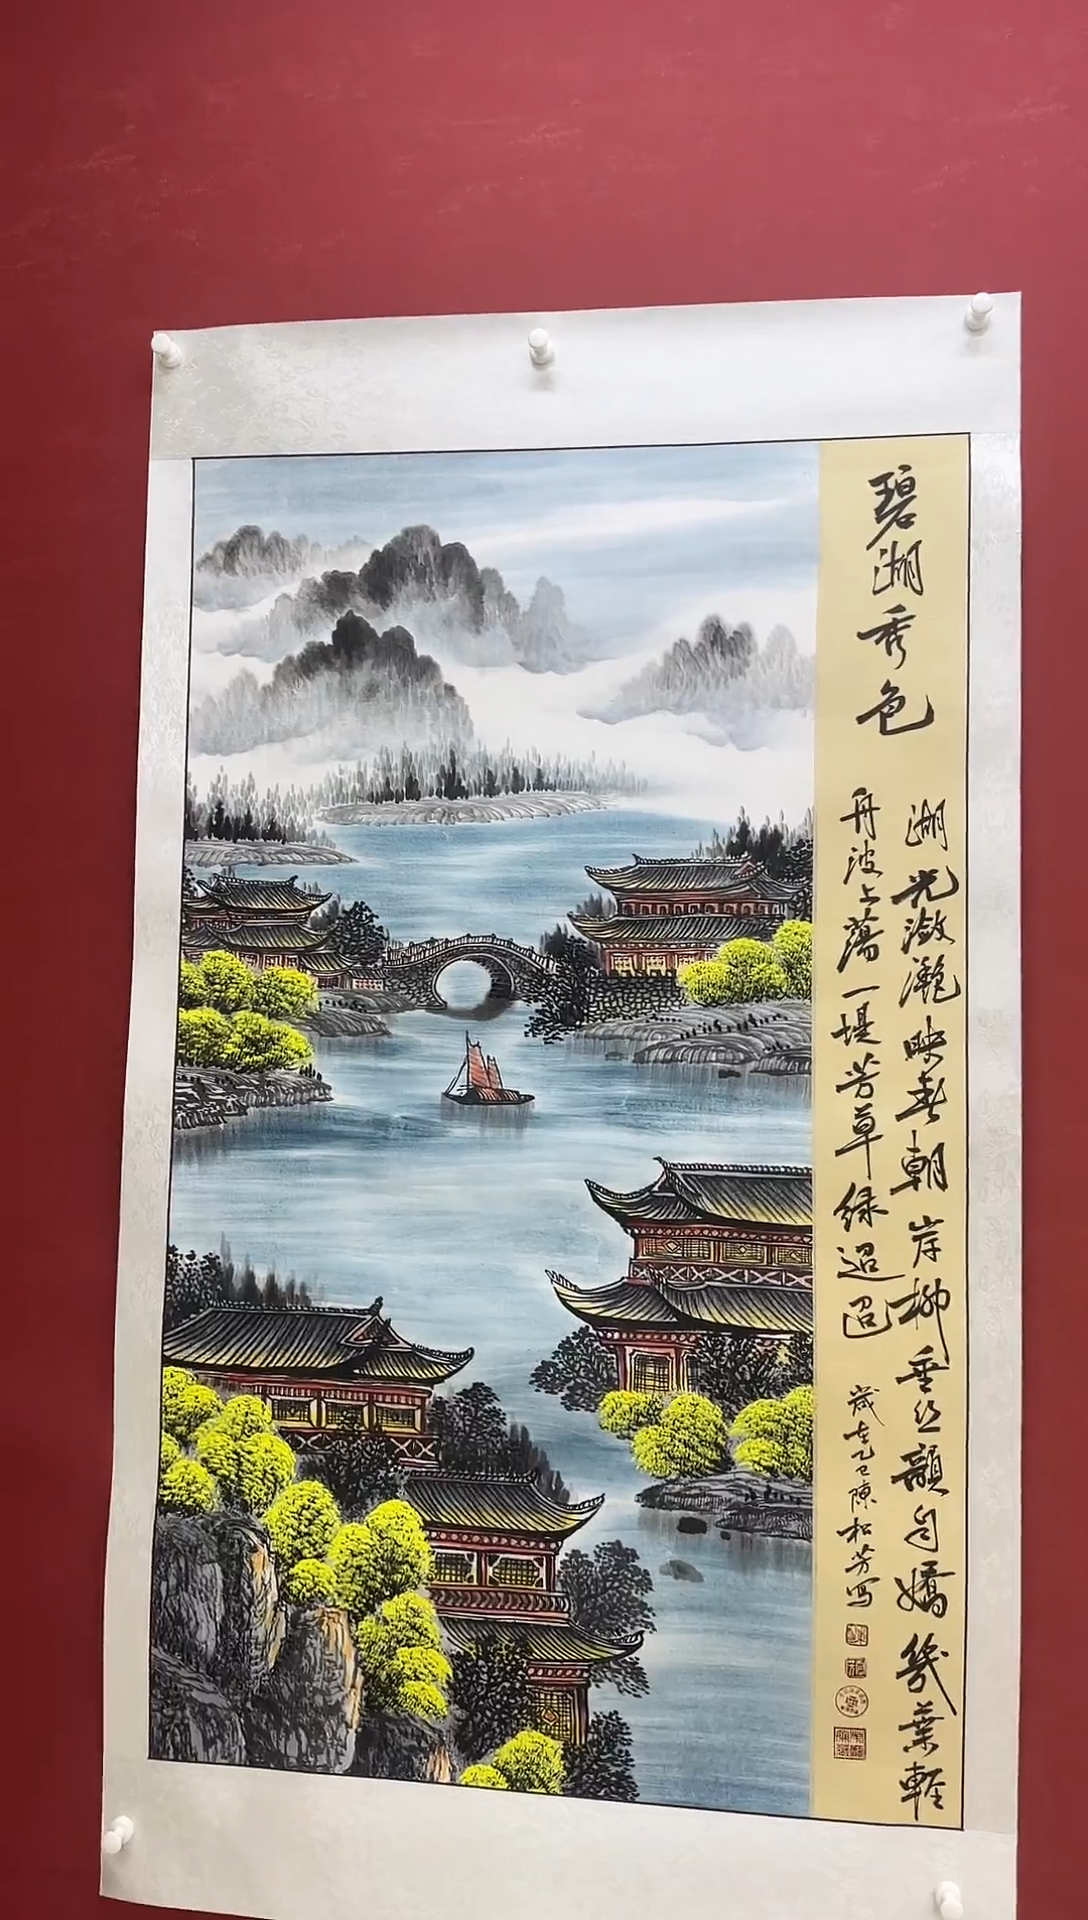 碧湖秀色
湖光潋滟映春朝岸柳垂丝韻自嬌幾葉輕
舟波上荡一堤芳草绿迢迢
歲在乙巳陳松芳写